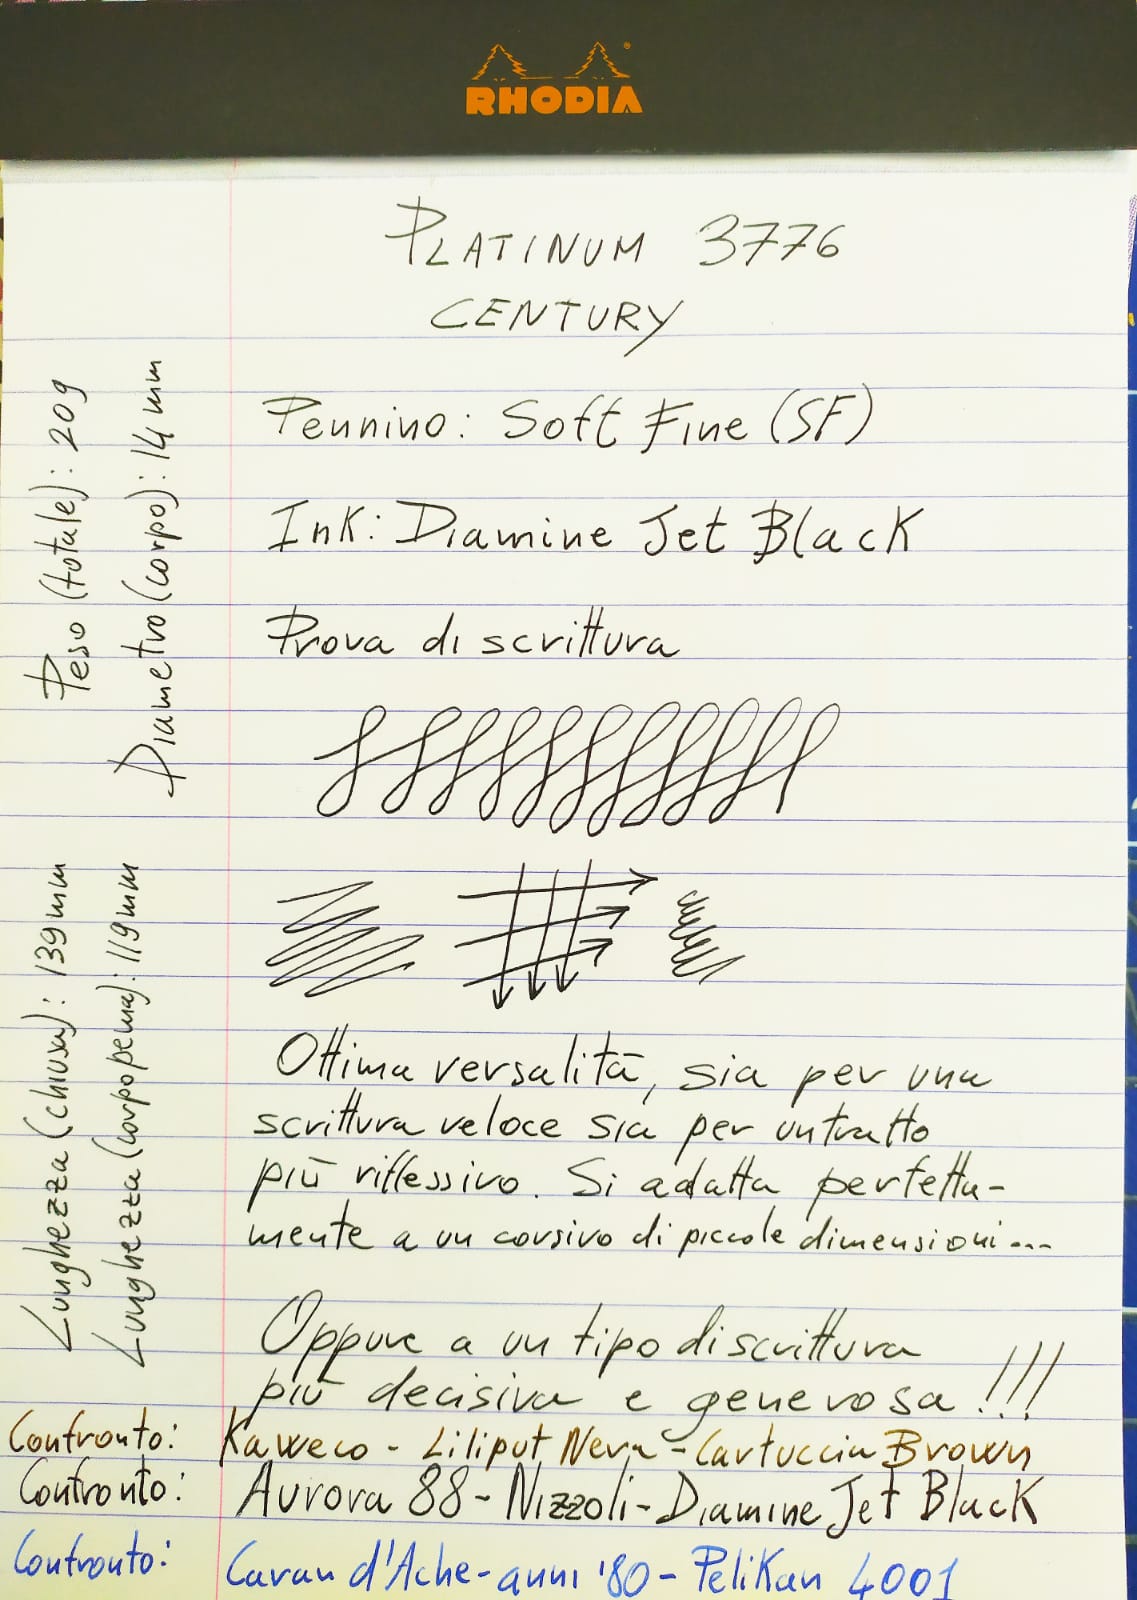 RHODIA
PLATINUM 3776
CENTURY
Pennino: Soft Fine (SF)
Ink: Diamine Jet Black
Prova di scrittura
Ottima versalità, sia per una
scrittura veloce sia per un tratto
più riflessivo. Si adatta perfetta-
mente a un corsivo di piccole dimensioni...
Oppure a un tipo di scrittura
più decisiva e generosa!!!
Confronto: Kaweco - Liliput Nera - Cartuccia Brown
Confronto: Aurora 88 - Nizzoli - Diamine Jet Black
Confronto: Caran d'Ache - anni '80 - Pelikan 4001
Peso (totale): 20g
Diametro (corpo): 14mm
Lunghezza (chiusa): 139mm
Lunghezza (corpo penna): 119mm